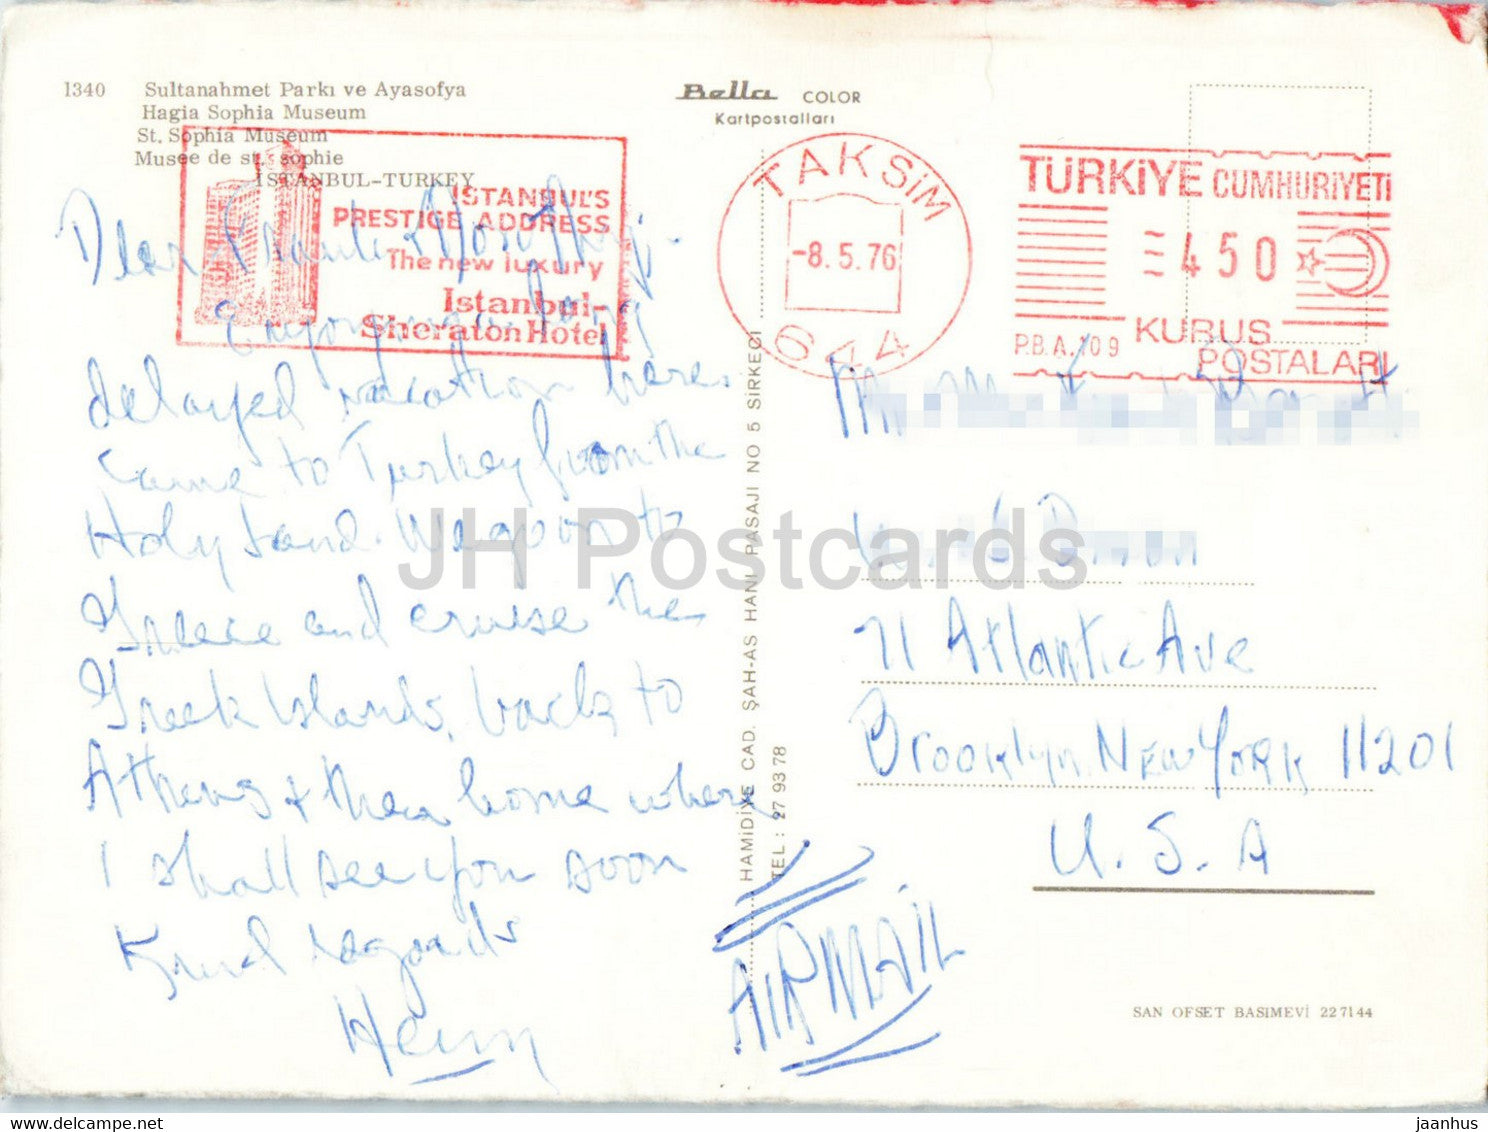 1340 Sultanahmet Parkı ve Ayasofya
Hagia Sophia Museum
St. Sophia Museum
Musee de st. sophie
ISTANBUL-TURKEY
Bella COLOR
Kartpostalları
ISTANBUL'S
PRESTIGE ADDRESS
The new luxury
Istanbul-
Sheraton Hotel
TAKSiM
-8.5.76
644
TÜRKiYE CUMHURiYETi
450
P.B.A.109
KURUS
POSTALARI
Dear & Dorothy,
Enjoying a long
delayed vacation here.
Came to Turkey from the
Holy Land. We go on to
Greece and cruise the
Greek Islands, back to
Athens & then home where
I shall see you soon
Kind regards
Henry
HAMiDiYE CAD. ŞAH-AS HANI PASAJI NO 5 SİRKECİ
TEL : 27 93 78
71 Atlantic Ave
Brooklyn New York 11201
U. S. A
AIRMAIL
SAN OFSET BASIMEVİ 22 71 44
JH Postcards
delcampe.net
jaanhus